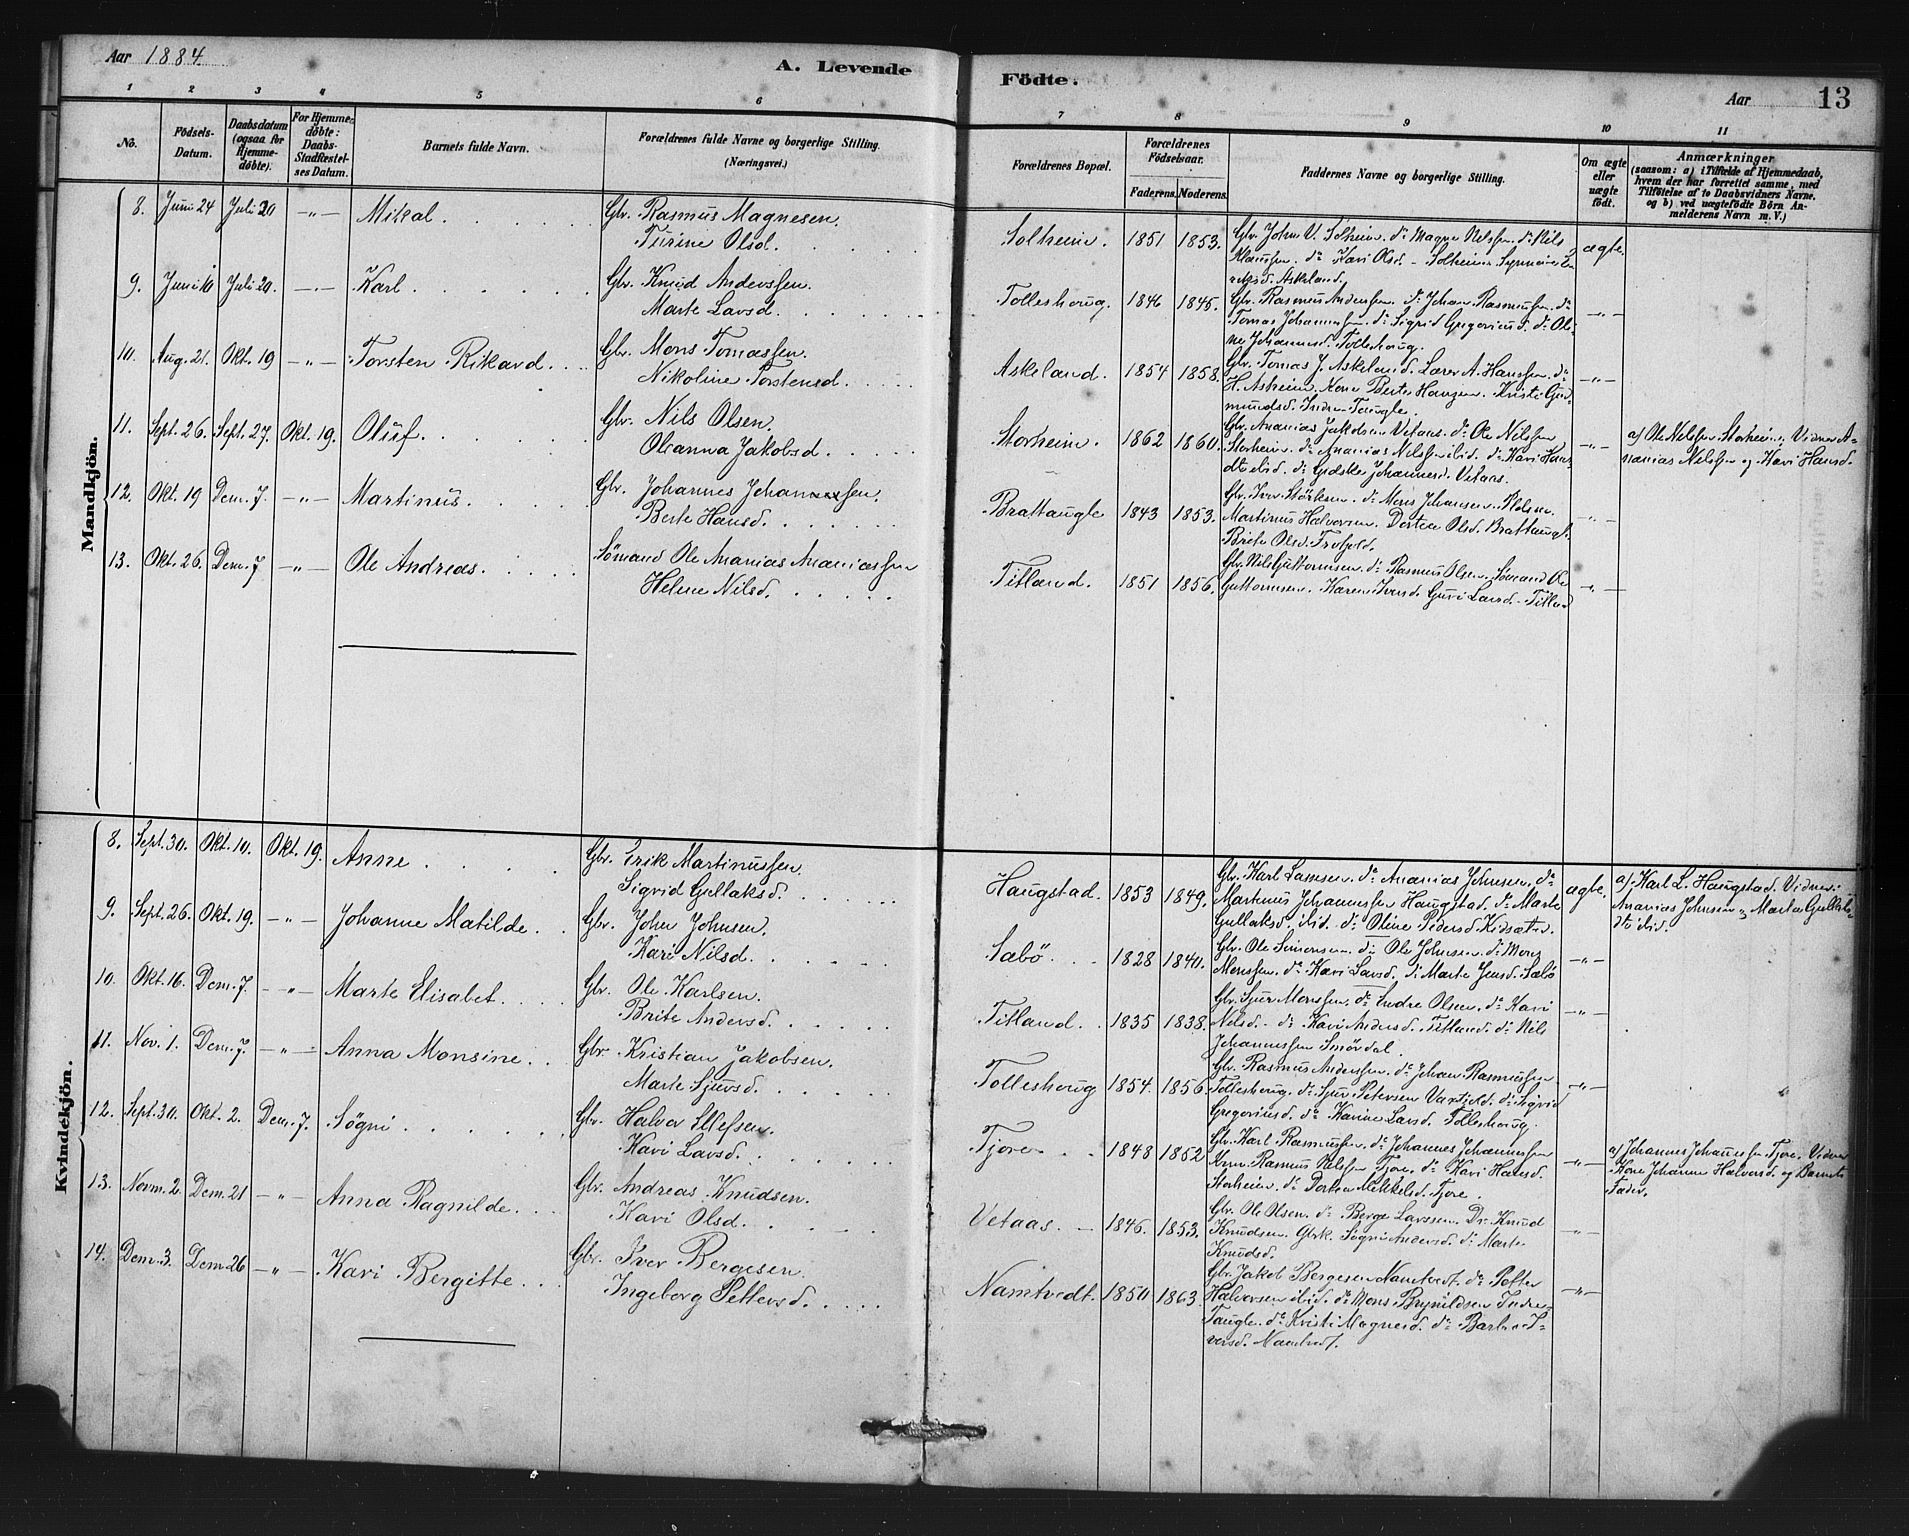 Aar 1884.
A. Levende Födte.
Aar
13
1 2 3 4 5 6 7 8 9 10 11
No.
Födsels-Datum.
Daabsdatum (ogsaa for Hjemmedøbte).
For Hjemmedøbte: Daabs-Stadfæstelses Datum.
Barnets fulde Navn.
Forældrenes fulde Navne og borgerlige Stilling. (Næringsvei.)
Forældrenes Bopæl.
Forældrenes Födselsaar.
Faderens. Moderens.
Faddernes Navne og borgerlige Stilling.
Om ægte eller uægte födt.
Anmærkninger (saasom: a) i Tilfælde af Hjemmedaab, hvem der har forrettet samme, med Tilföielse af to Daabsvidners Navne, og b) ved uægtefödte Börn Anmelderens Navn m. V.)
Mandkjön.
8. Juni 24 Juli 20 -"- Mikal. Gbr. Rasmus Magnesen.
Turine Olsd.
Solheim. 1851 1853. Gbr. Johns V. Solheim. do Magne Nilssen. do Nils
Klaussen. do Kari Olsd. - Solheim. Synneve
Askeland. ægte.
9. Juni 10 Juli 20. -"- Karl. Gbr. Knud Anderssen.
Marte Larsd.
Tolleshoug. 1846 1845. Gbr. Rasmus Anderssen. do Johan Rasmussen. do
Tomas Johannessen. do Sigrid Gregoriusd. do Oli-
ne Johannesd. Tolleshoug. -"-
10. Aug. 21. Okt. 19 -"- Torsten Rikard. Gbr. Mons Tomassen.
Nikoline Torstensd.
Askeland. 1854 1858. Gbr. Tomas J. Askeland. Lærer A. Hanssen. do
H. Askeim. Kone Berte Hansen. Kristi Gud-
mundsd. Indre Taugle. -"-
11. Sept. 26. Sept. 27. Okt. 19. Oluf. Gbr. Nils Olsen.
Oleanna Jakobsd.
Storheim. 1862 1860. Gbr. Ananias Jakobsen Vetaas. do Ole Nilssen
Storheim. do Ananias Nilssen ibid. do Kari Hans-
dt. ibid. do Gudske Johannesd. Vetaas. -"- a) Ole Nilssen Storheim; Vidner A-
nanias Nilssen og Kari Hansd.
12. Okt. 19 Dem. 7. -"- Martinus. Gbr. Johannes Johannessen.
Berte Hansd.
Brattaugle 1843 1853. Gbr. Iver Störksen. do Mons Johansen.
Martinus Halvorsen. Dortea Olsd. Brattaugl.
Brite Olsd. -"-
13. Okt. 26. Dem. 7 -"- Ole Andreas. Sömand Ole Ananias Ananiassen
Helene Nilsd.
Titland. 1851 1856. Gbr. Nils Guttormsen. do Rasmus Olsen. Sömand Ole
Guttormsen. Karen Iversd. Guri Larsd. Titland -"-
Kvindekjön.
8. Sept. 30. Okt. 10. Okt. 19. Anne. Gbr. Erik Martinussen.
Sigrid Gullaksd.
Haugstad. 1853 1849. Gbr. Karl Larssen. do Ananias Johnsen. do
Martinus Johannessen Haugstad. do Marte
Gullaksd. ibid. do Oline Pedersd. Kidsæter. ægte. a) Karl L. Haugstad. Vidner:
Ananias Johnsen og Marta Gullaks-
dt. ibid.
9. Sept. 26. Okt. 19. -"- Johanne Matilde. Gbr. John Johnsen.
Kari Nilsd.
Sæbö. 1828 1840. Gbr. Ole Simonsen. do Ole Johnsen. do Mons
Monssen. do Kari Larsd. do Marte Jensd. Sæbö -"-
10. Okt. 16. Dem. 7. -"- Marte Elisabet. Gbr. Ole Karlsen.
Brite Andersd.
Titland. 1835 1838. Gbr. Sjur Monssen. do Indre Olsen. do Kari
Nilsd. do Kari Andersd. Titland. do Nils
Johannessen Smördal. -"-
11. Nov. 1. Dem. 7. -"- Anna Monsine. Gbr. Kristian Jakobsen.
Marte Sjursd.
Tolleshoug 1854. 1856. Gbr. Rasmus Anderssen. do Johan Rasmussen
Tolleshoug. do Sjur Petersen. do Sigrid
Gregoriusd. do Karine Larsd. Tolleshoug. -"-
12. Sept. 30. Okt. 2. Dem. 7. Sögni. Gbr. Halvor Ellefsen.
Kari Larsd.
Fjore. 1848 1852 Gbr. Karl Rasmussen. do Johannes Johannessen
Rasmus Nilssen Fjore. do Kari Hansd.
Storheim. do Dortea Mikkelsd. Fjore. -"- a) Johannes Johannessen Fjore. Vidner
Kone Johanne Halvorsd. og Barnets
Fader.
13. Novm. 2. Dem. 21 -"- Anna Ragnilde. Gbr. Andreas Knudsen.
Kari Olsd.
Vetaas. 1846. 1853. Gbr. Ole Olsen. do Berge Larssen. Dr. Knud
Knudsen. Gbrk. Sögni Andersd. do Marte
Knudsd. -"-
14. Dem. 3. Dem. 26 -"- Kari Bergitte. Gbr. Iver Bergesen.
Ingeborg Pettersd.
Namtvedt. 1850 1863. Gbr. Jakob Bergesen Namtvedt. do Petter
Halvorsen ibid. do Mons Brynildsen Indre-
Taugle. do Kristi Magnesd. do Barbro I-
versd. Namtvedt. -"-